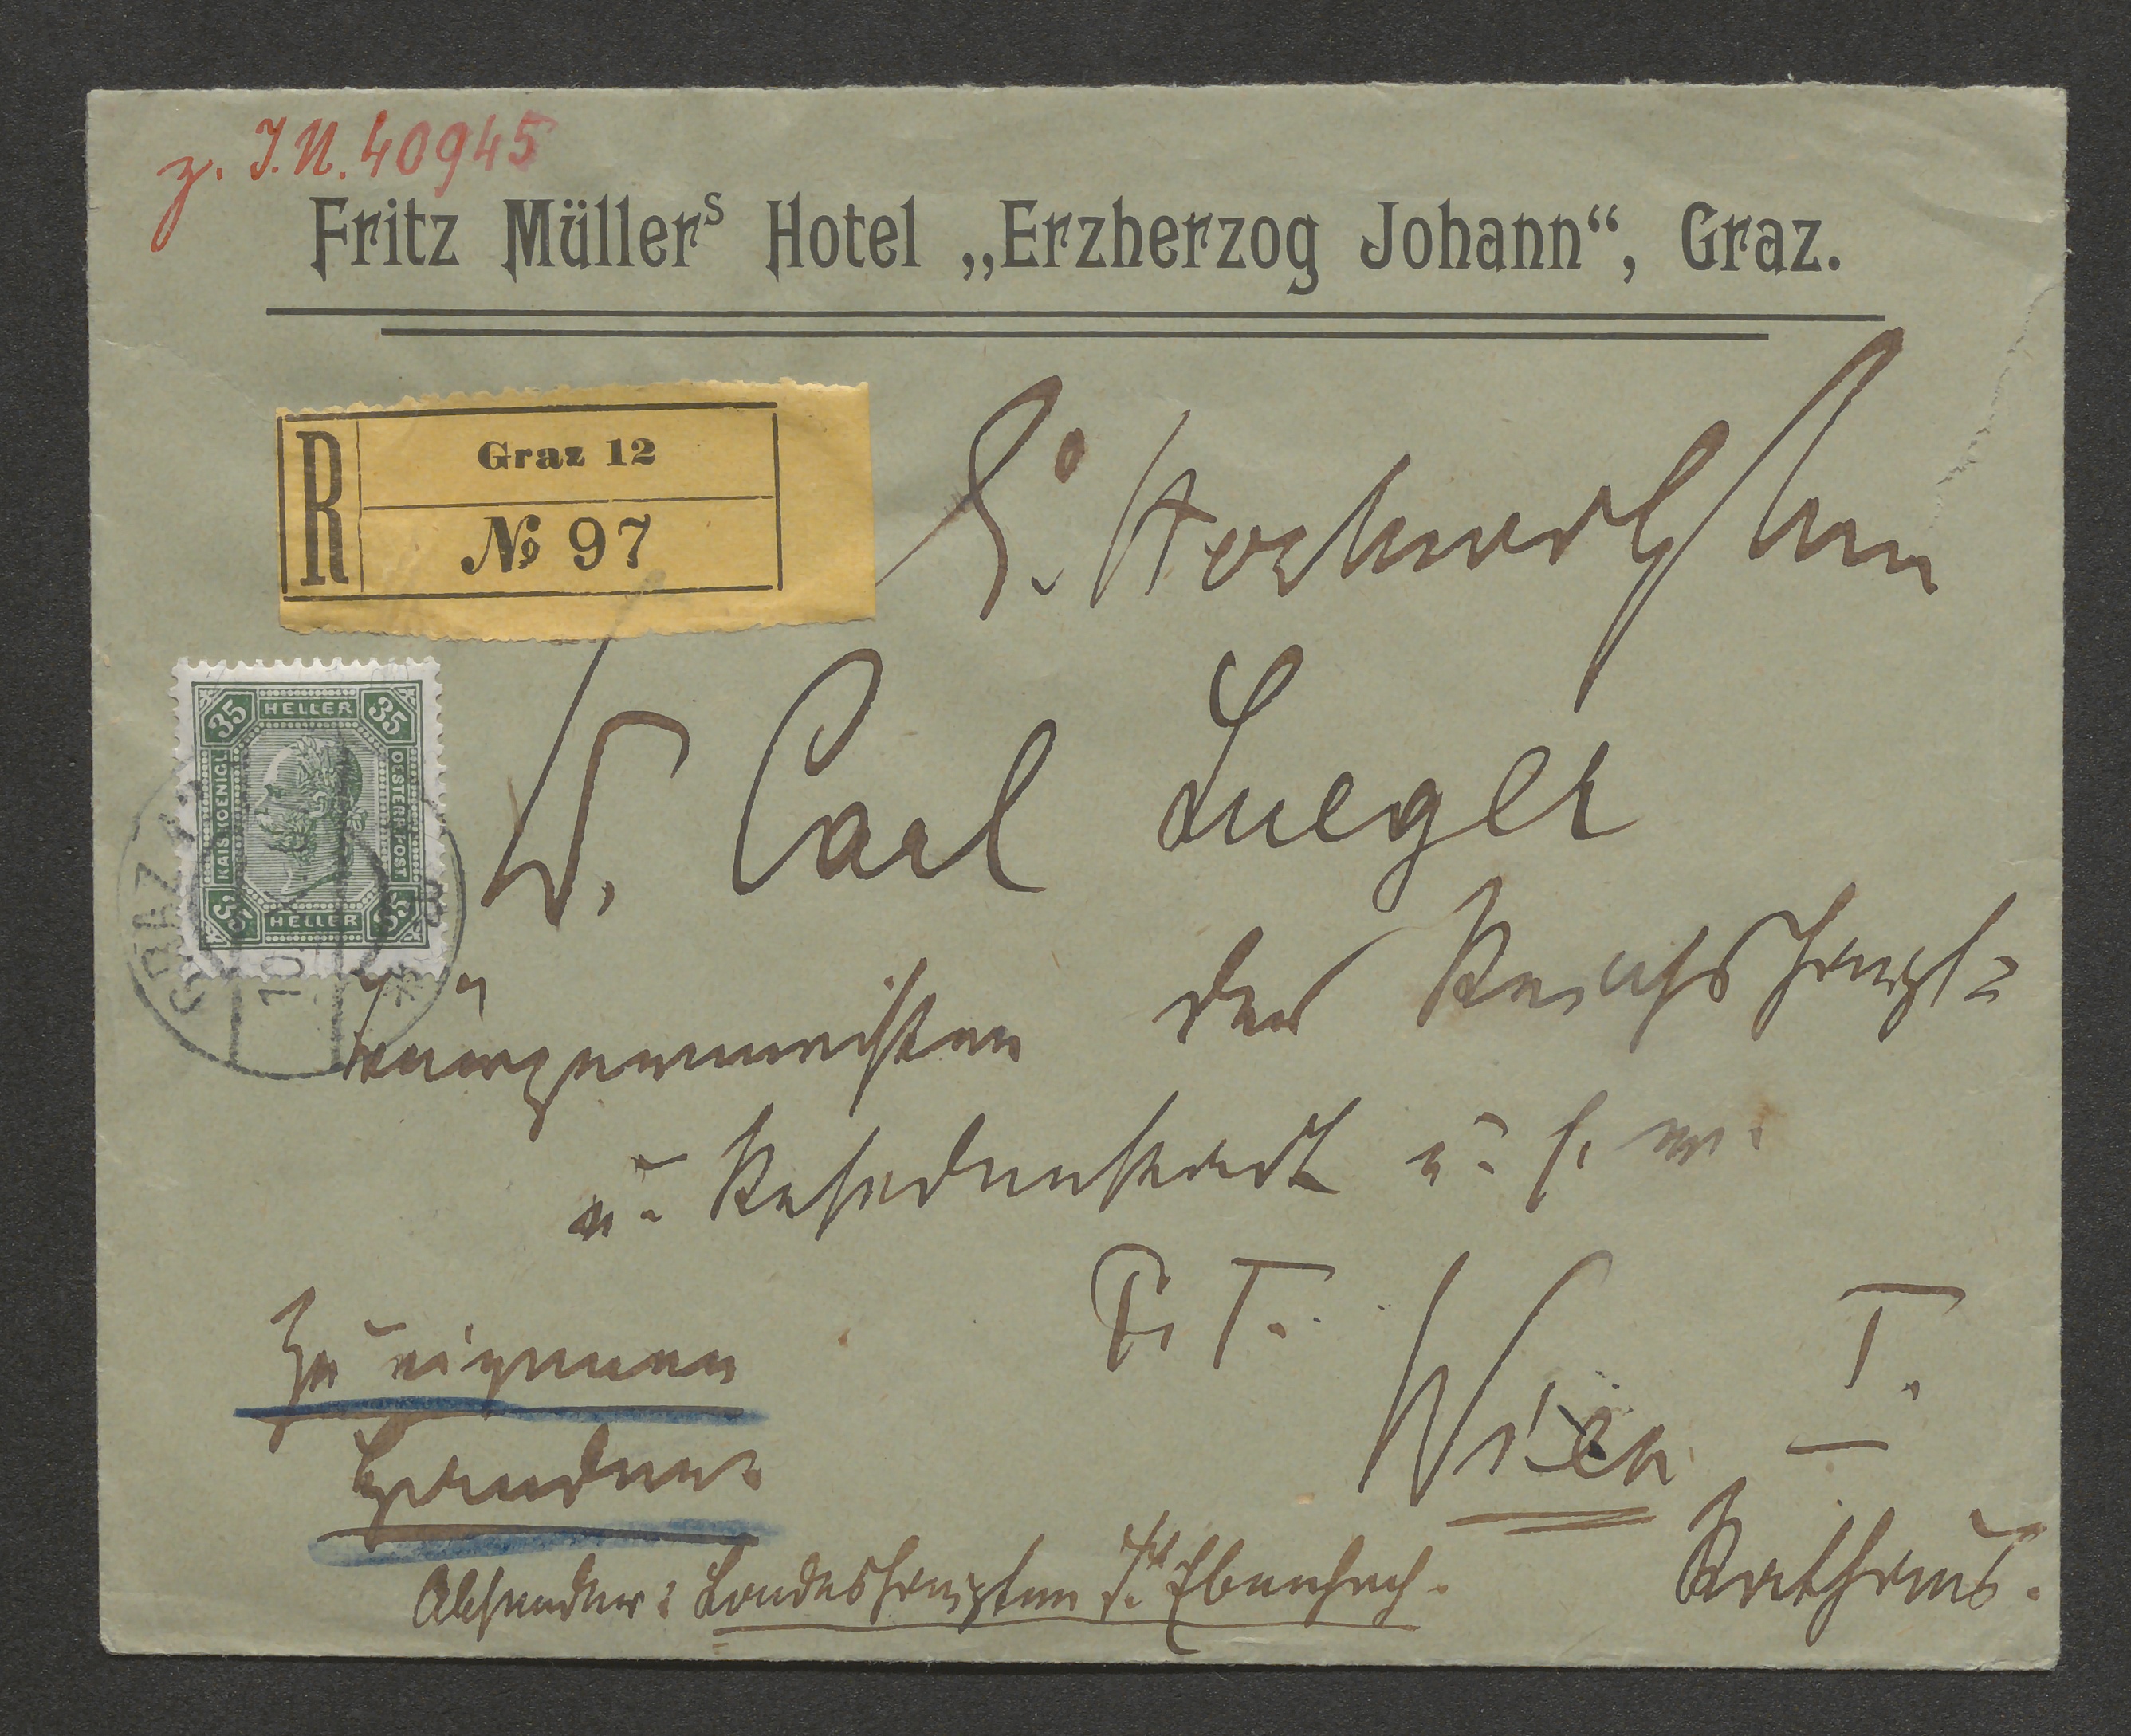 z. I.N. 40945
Fritz Müllers Hotel „Erzherzog Johann“, Graz.
R
Graz 12
№ 97
S. Hochwohlgeb. Herrn
35 HELLER 35
KAIS. KOENIGL. OESTERR. POST
35 HELLER 35
GRAZ
10
Dr. Carl Lueger
Bürgermeister der Reichshaupt=
u. Residenzstadt u. s. w.
P. T.
Wien I.
Zu eigenen
Handen.
Rathaus.
Absender: Landeshauptm. Dr. Ebenhoch.